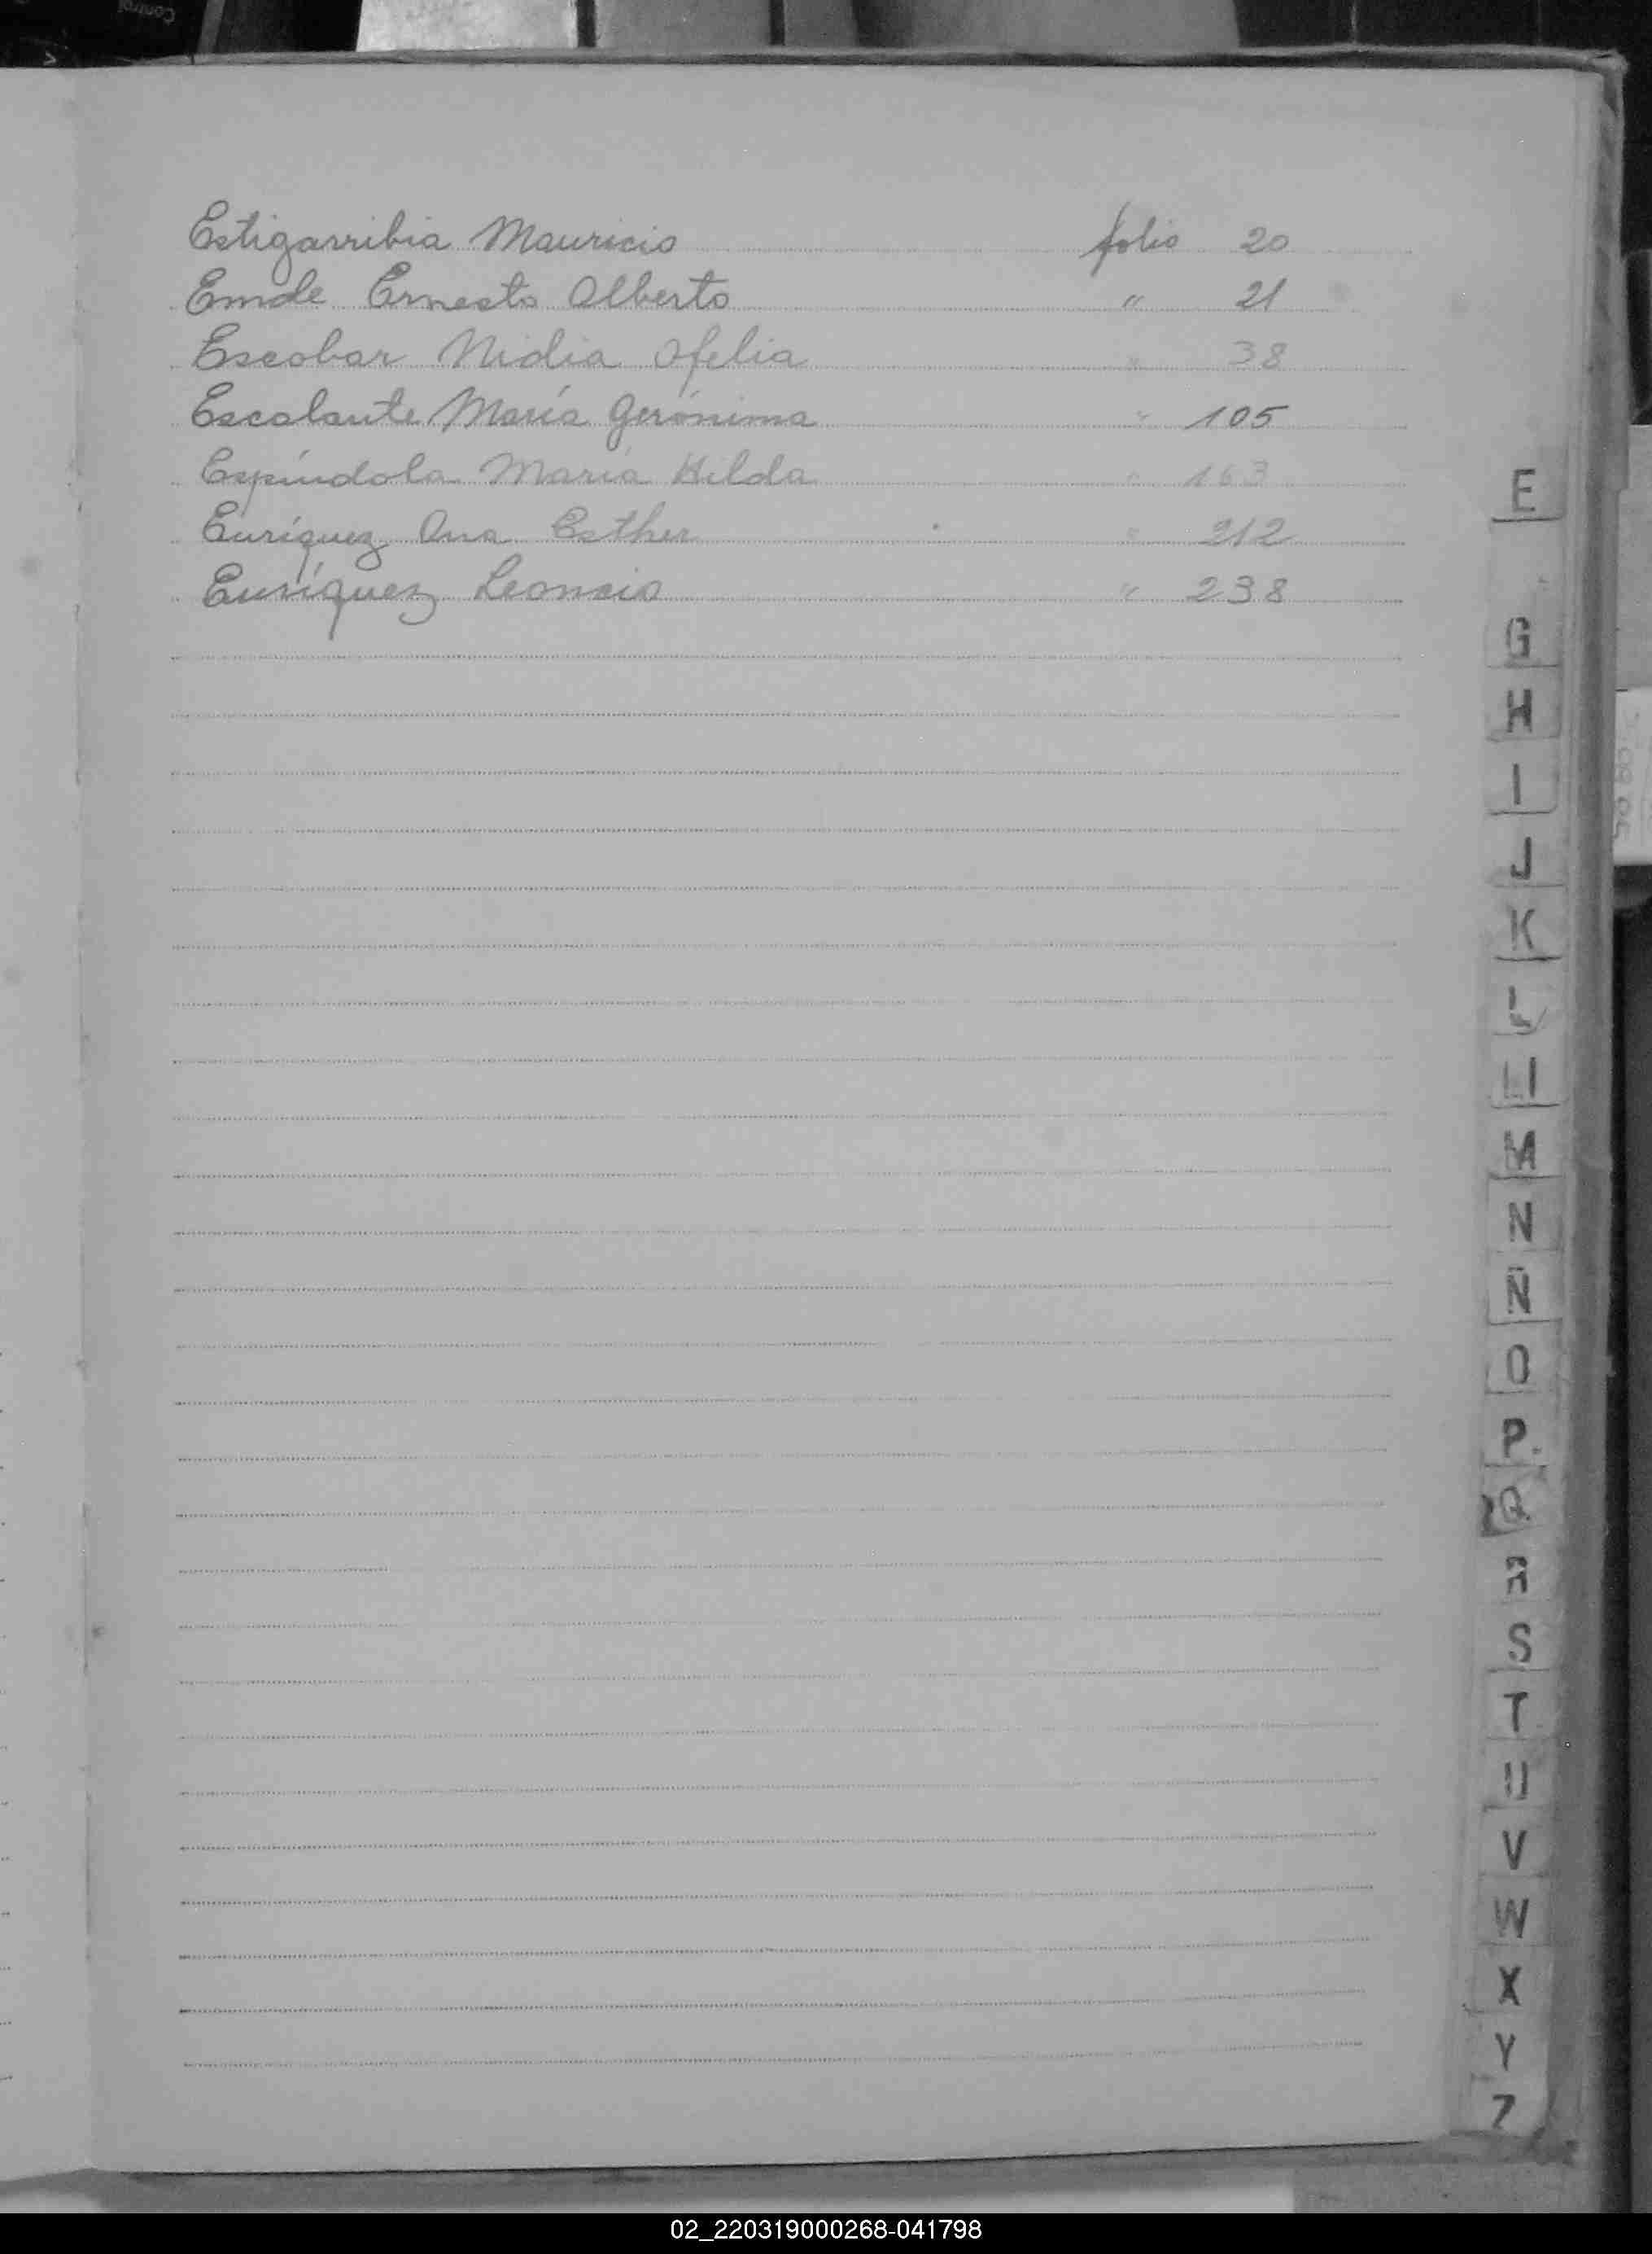 Estigarribia Mauricio folio 20
Emde Ernesto Alberto " 21
Escobar Nidia Ofelia " 38
Escalante María Gerónima " 105
Espíndola María Hilda " 163
Enríquez Ana Esther " 212
Enríquez Leoncio " 238
E
G
H
I
J
K
L
Ll
M
N
Ñ
O
P
Q
R
S
T
U
V
W
X
Y
Z
02_220319000268-041798